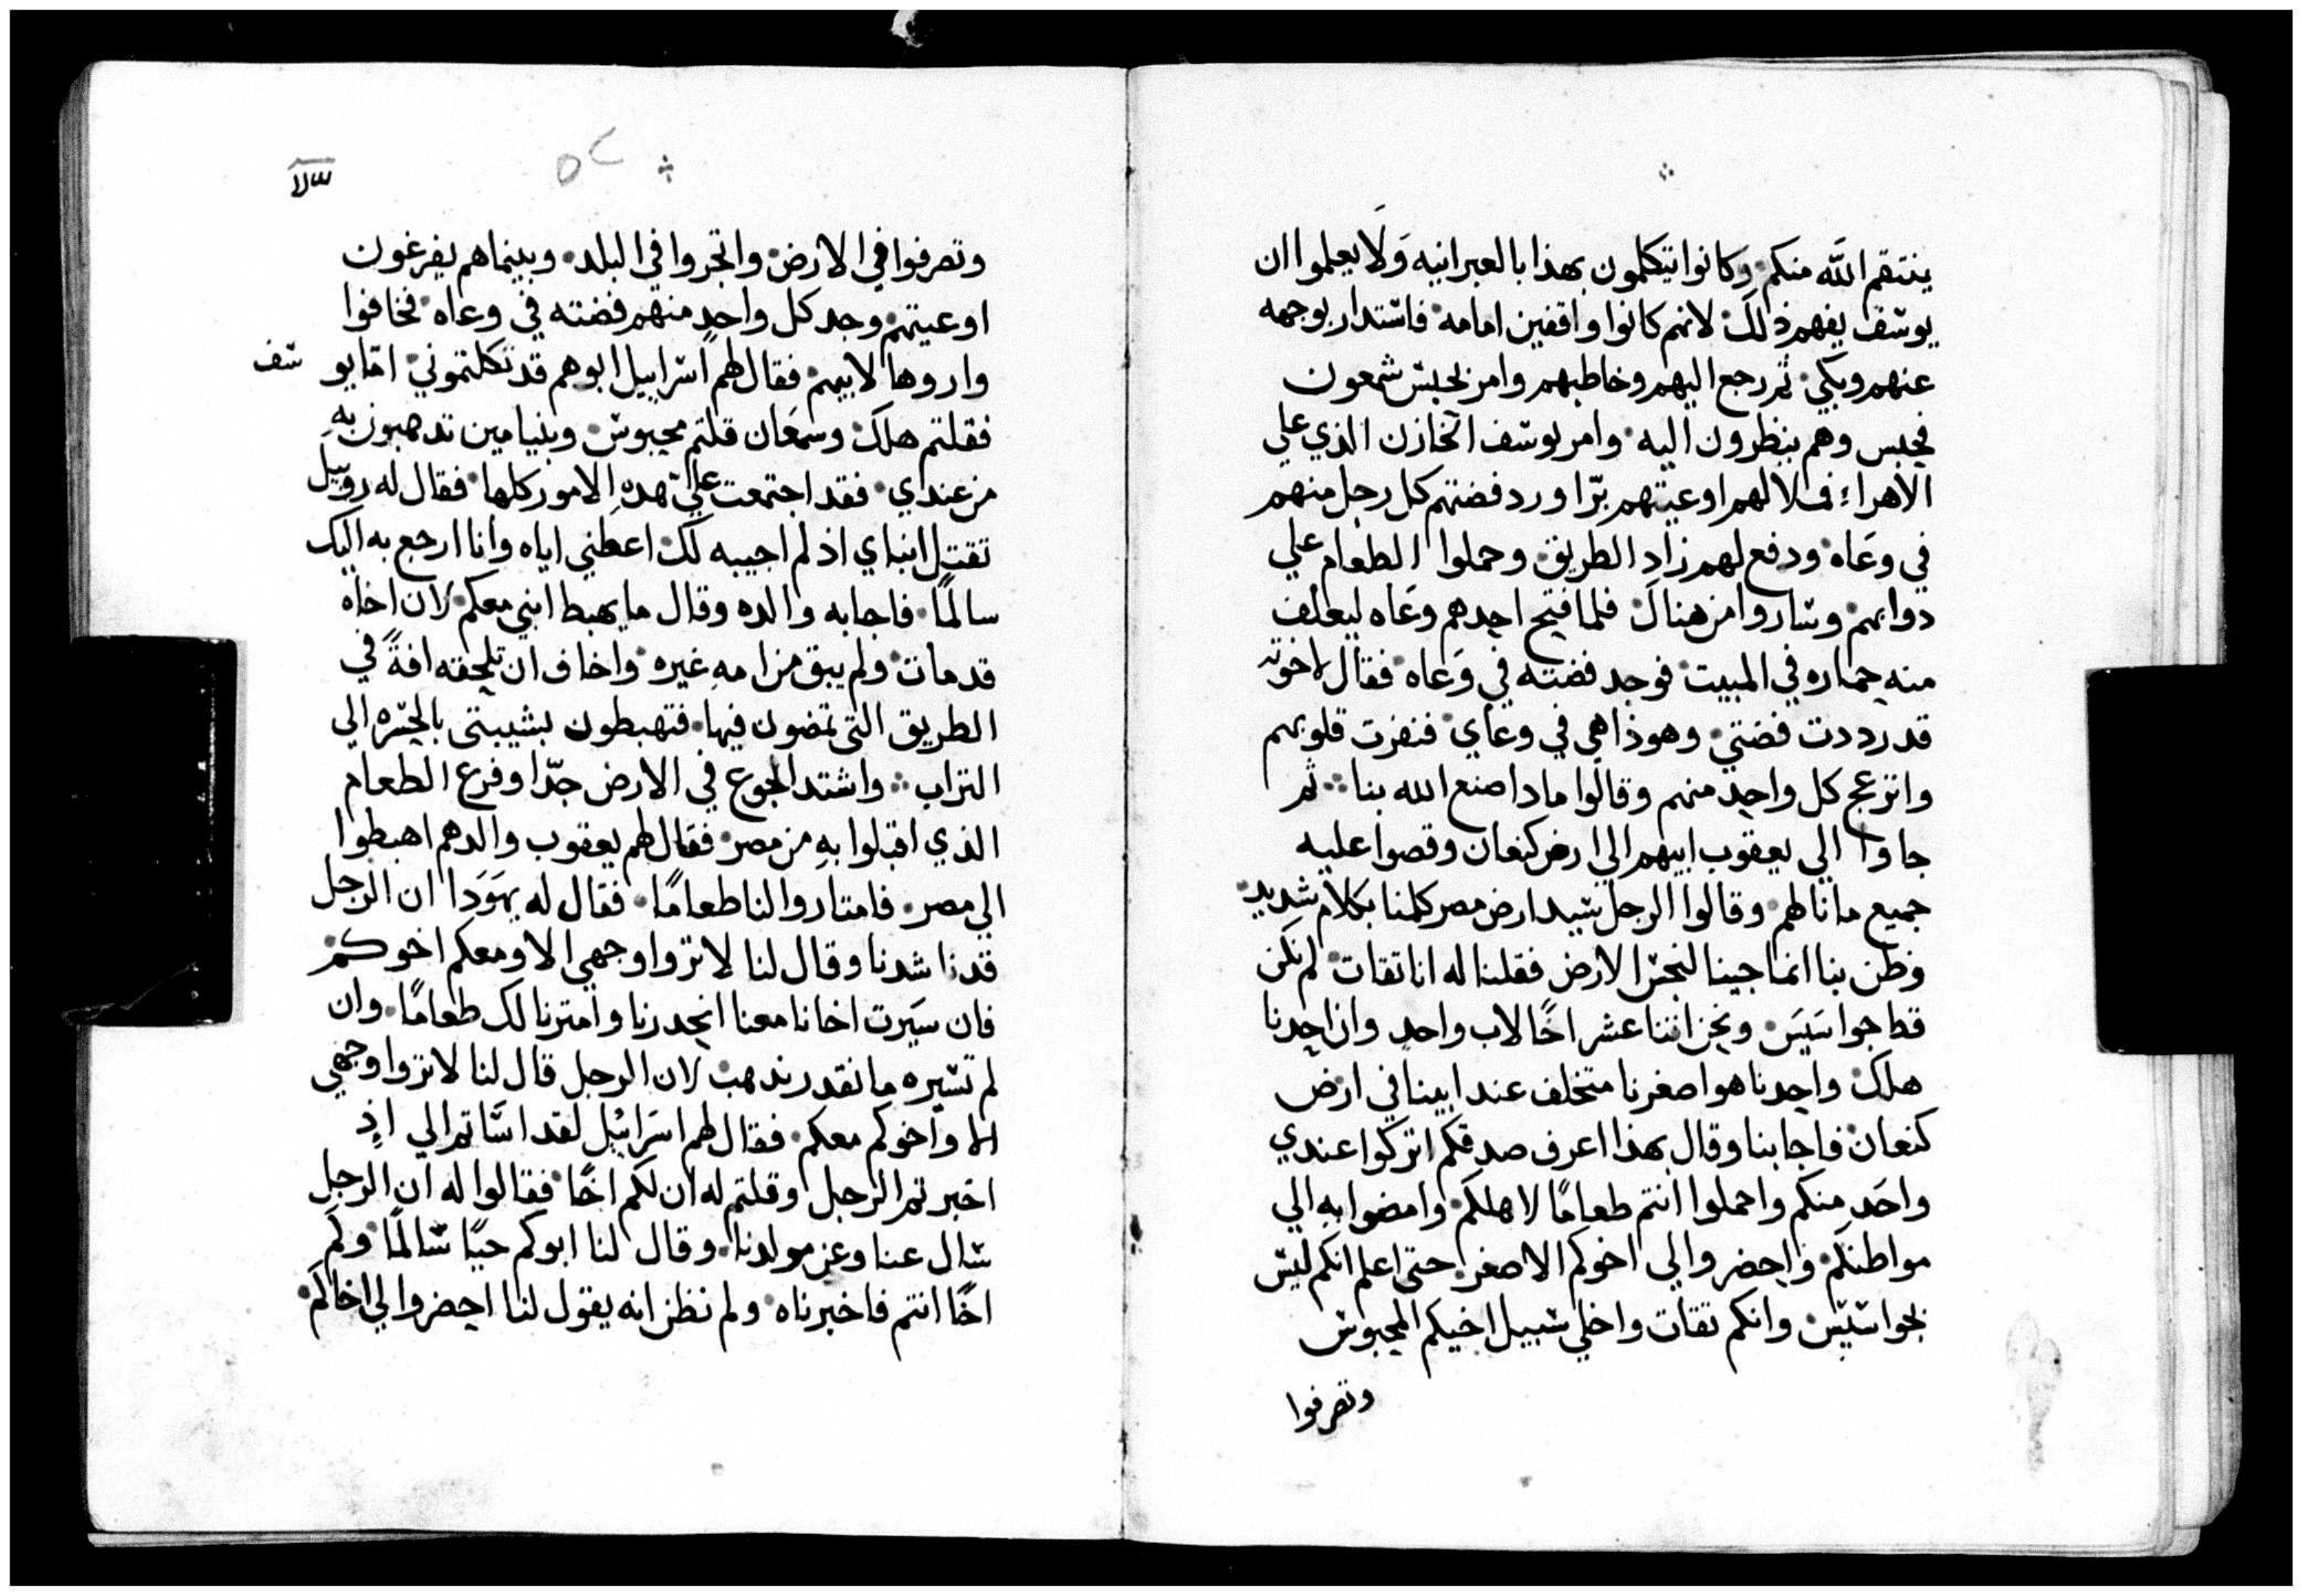 ينتقم الله منكم وكانوا يتكلمون بهذا بالعبرانيه ولا يعلموا ان
يوسف يفهم ذلك لانهم كانوا واقفين امامه فاستدار بوجهه
عنهم وبكي ثم رجع اليهم وخاطبهم وامر بحبس شمعون
فحبس وهم ينظرون اليه وامر يوسف الخازن الذي علي
الاهراء فملا لهم اوعيتهم برّا ورد فضتهم كل رجل منهم
في وعاه ودفع لهم زاد الطريق وحملوا الطعام علي
دوابهم وساروا من هناك فلما فتح احدهم وعاه ليعلف
منه حماره في المبيت فوجد فضته في وعاه فقال لاخوته
قد رددت فضتي وهوذا هي في وعاي فنفرت قلوبهم
وانزعج كل واحد منهم وقالوا مادا صنع الله بنا ثم
جاوا الي يعقوب ابيهم الي ارض كنعان وقصوا عليه
جميع ما نالهم وقالوا الرجل سيد ارض مصر كلمنا بكلام شديد
وظن بنا انما جينا لنجس الارض فقلنا له انا تقات لم نكن
قط جواسيس ونحن اتنا عشر اخًا لاب واحد وان احدنا
هلك واحدنا هو اصغرنا متخلف عند ابينا في ارض
كنعان فاجابنا وقال بهذا اعرف صدقكم اتركوا عندي
واحد منكم واحملوا انتم طعامًا لاهلكم وامضوا به الي
مواطنكم واحضروا لي اخوكم الاصغر حتى اعلم انكم ليس
بجواسيس وانكم تقات واخلي سبيل اخيكم المحبوس
وتصرفوا
٥٢
وتصرفوا في الارض واتجروا في البلد وبينما هم يفرغون
اوعيتهم وجد كل واحد منهم فضته في وعاه فخافوا
واروها لابيهم فقال لهم اسراييل ابوهم قد تكلتموني امّا يوسف
فقلتم هلك وسمعان قلتم محبوس وبنيامين تدهبون به
من عندي فقد اجتمعت عليّ هده الامور كلها فقال له روبيل
تقتل ابناي اذ لم اجيبه لك اعطني اياه وانا ارجع به اليك
سالمًا فاجابه والده وقال ما يهبط ابني معكم لان اخاه
قد مات ولم يبق من امه غيره واخاف ان تلحقه افةً في
الطريق التى تمضون فيها فتهبطون بشيبتى بالحسره الي
التراب واشتد الجوع في الارض جدّا وفرغ الطعام
الذي اقبلوا به من مصر فقال لهم يعقوب والدهم اهبطوا
الي مصر فامتاروا لنا طعامًا فقال له يهودا ان الرجل
قد ناشدنا وقال لنا لا تروا وجهي الا ومعكم اخوكم
فان سيرت اخانا معنا انحدرنا وامترنا لك طعامًا وان
لم تسيره ما نقدر ندهب لان الرجل قال لنا لا تروا وجهي
الا واخوكم معكم فقال لهم اسراييل لقد اساتم الي اذ
اخبرتم الرجل وقلتم له ان لكم اخًا فقالوا له ان الرجل
سال عنا وعن مولدنا وقال لنا ابوكم حيًا سالمًا ولكم
اخًا انتم فاخبرناه ولم نظن انه يقول لنا احضروا لي اخاكم